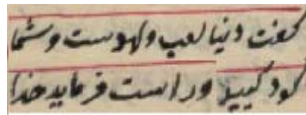 گفت دنیا لعب و لهوست و شما
کودکیید و راست فرماید خدا